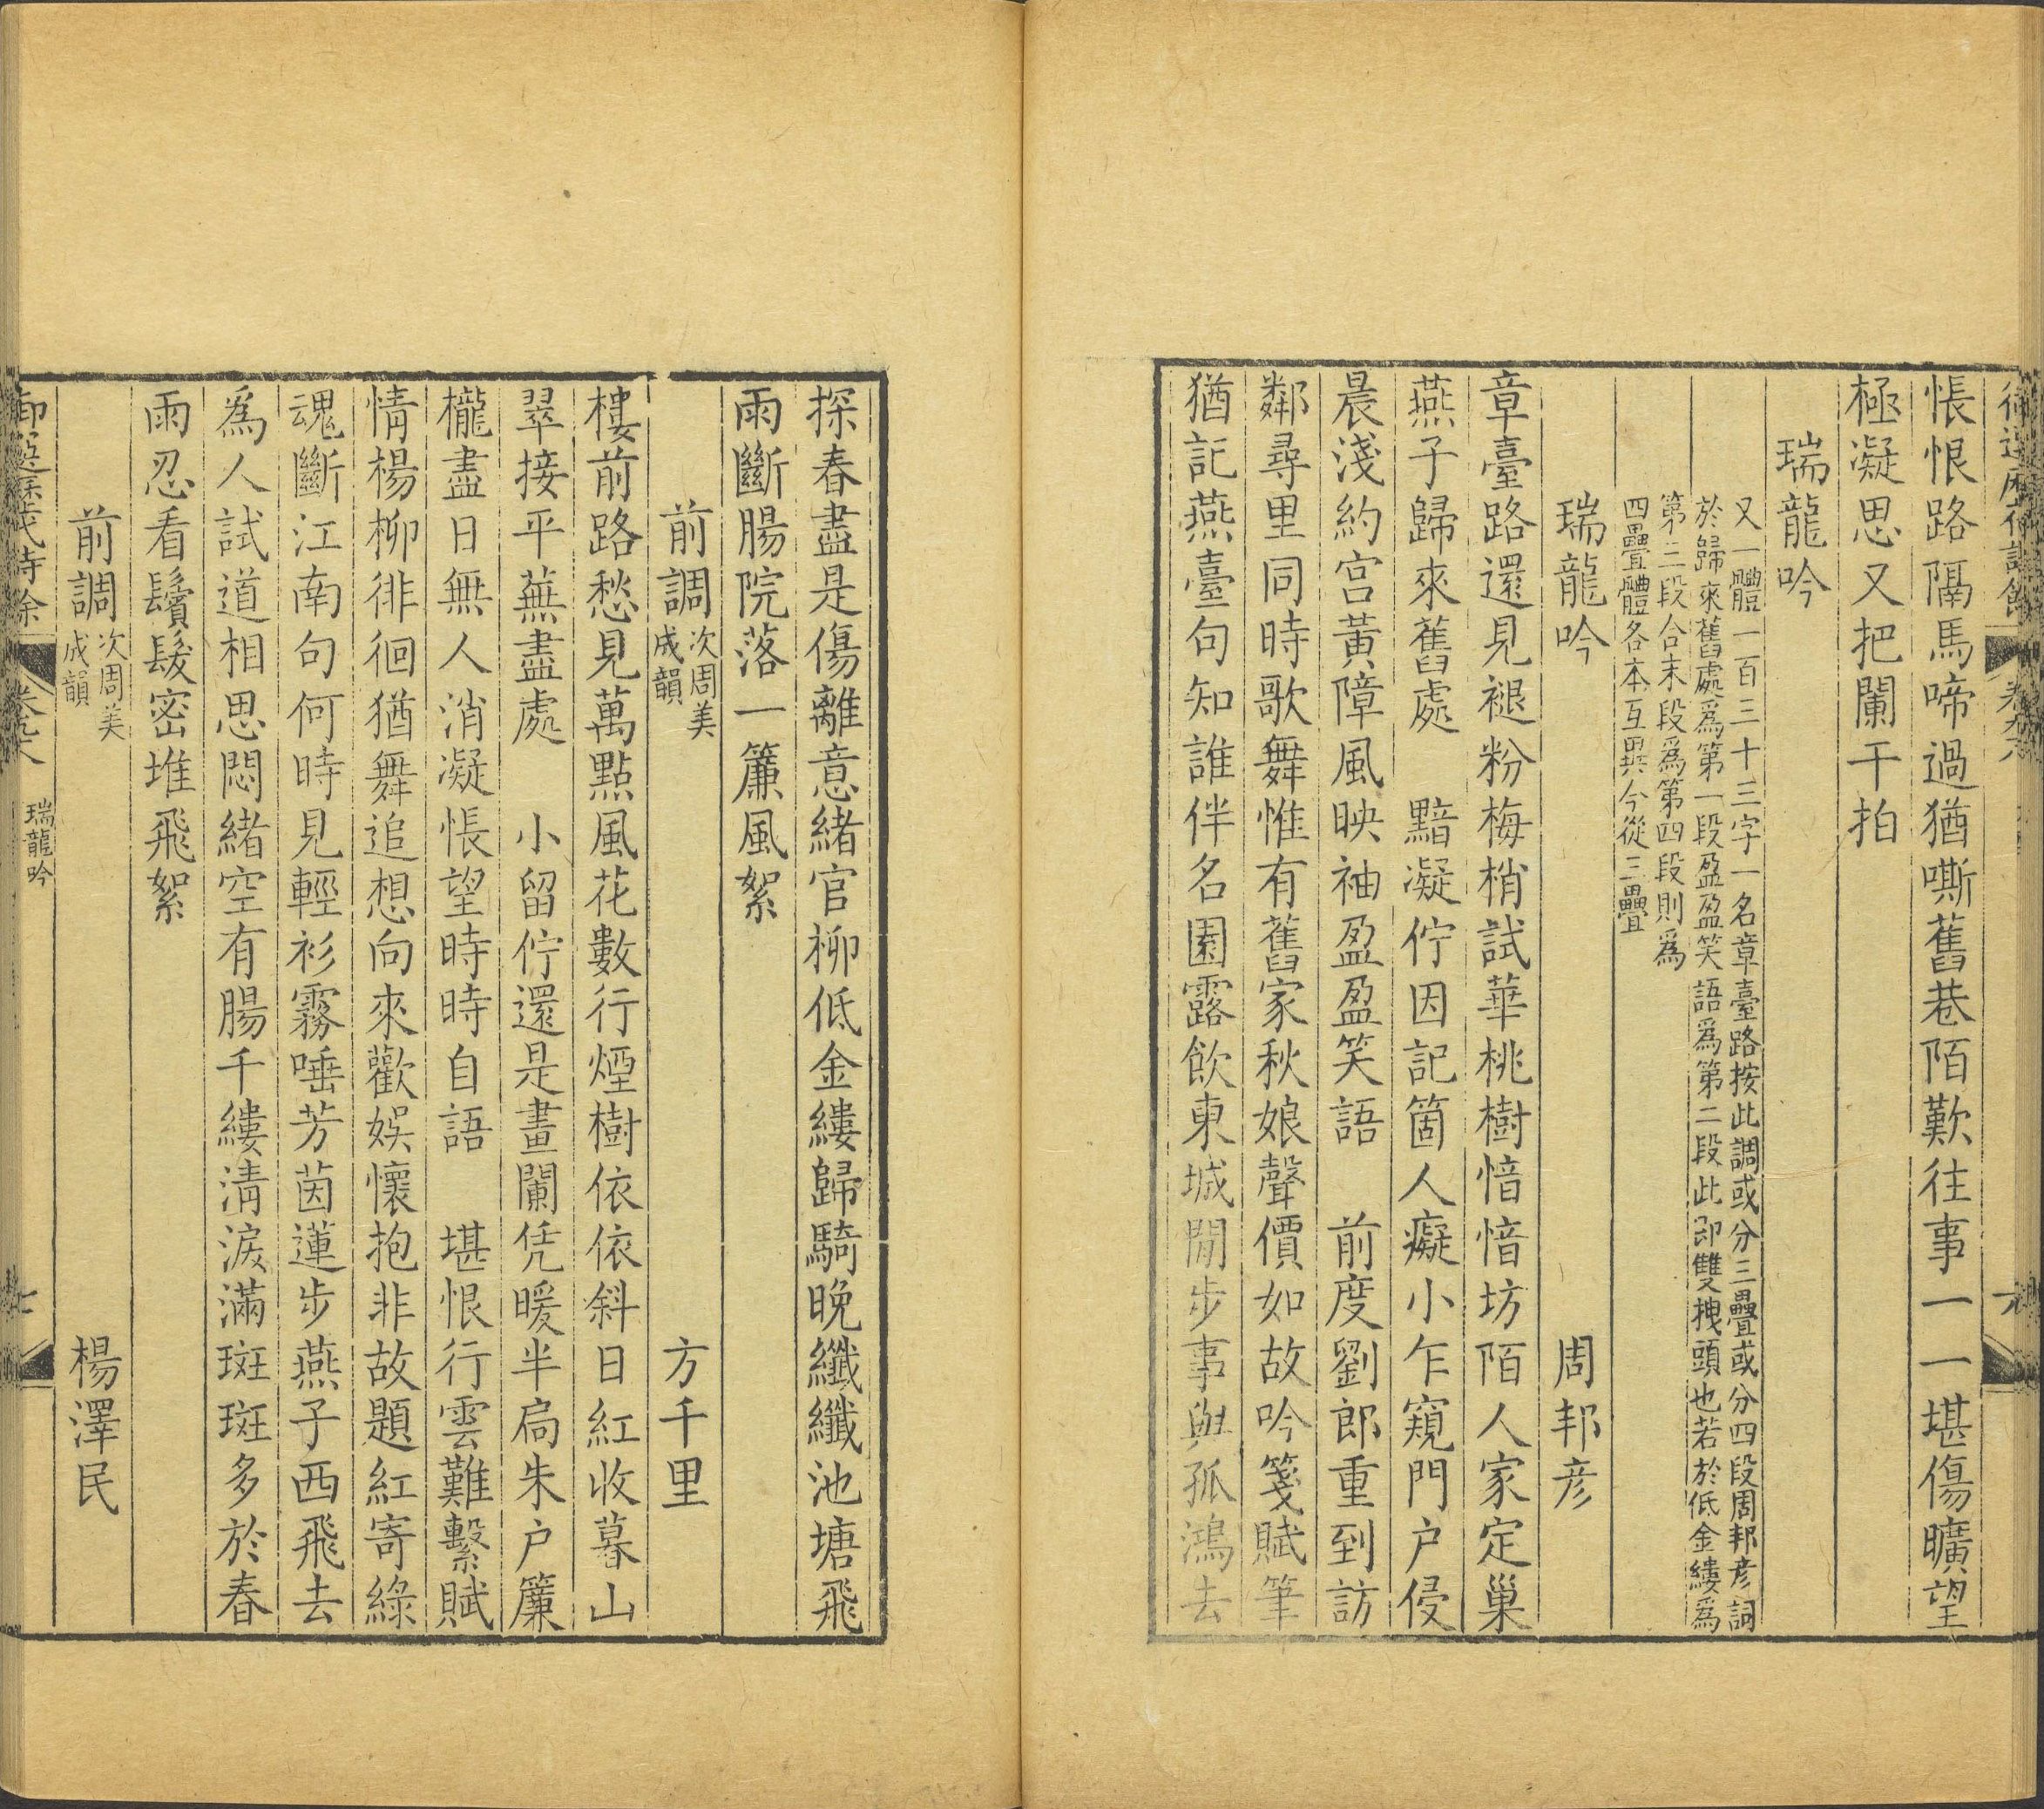 悵恨路隔馬啼過猶嘶舊巷陌歎往事一一堪傷曠望
極凝思又把闌干拍
瑞龍吟
又一體一百三十三字一名章臺路按此調或分三疊或分四段周邦彦詞
於歸來舊處爲第一段盈盈笑語爲第二段此即雙拽頭也若於低金縷爲
第三段合末段爲第四段則爲
四疊體各本互異今從三疊
瑞龍吟 周邦彦
章臺路還見褪粉梅梢試華桃樹愔愔坊陌人家定巢
燕子歸來舊處 黯凝佇因記箇人癡小乍窺門户侵
晨淺約宫黃障風映袖盈盈笑語 前度劉郎重到訪
鄰尋里同時歌舞惟有舊家秋娘聲價如故吟箋賦筆
猶記燕臺句知誰伴名園露飲東城閒步事與孤鴻去
探春盡是傷離意緒官柳低金縷歸騎晚纖纖池塘飛
雨斷腸院落一簾風絮
前調 次周美成韻 方千里
樓前路愁見萬點風花數行煙樹依依斜日紅收暮山
翠接平蕪盡處 小留佇還是畫闌凭暖半扃朱户簾
櫳盡日無人消凝悵望時時自語 堪恨行雲難繫賦
情楊柳徘徊猶舞追想向來歡娛懷抱非故題紅寄綠
魂斷江南句何時見輕衫霧唾芳茵蓮步燕子西飛去
爲人試道相思悶緒空有腸千縷清淚滿斑斑多於春
雨忍看鬢髮密堆飛絮
前調 次周美成韻 楊澤民
御選歷代詩餘 卷九十八 瑞龍吟